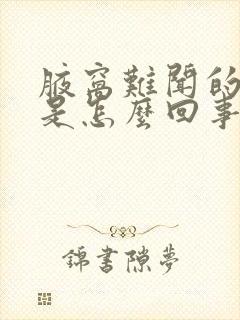 腋窩難聞的
是怎麼回事
錦書隙夢